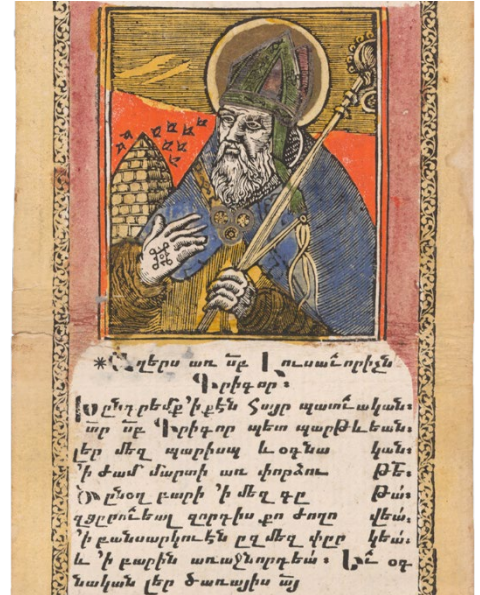 *Աղերս առ սբ Լուսաւորիչն
Գրիգոր։
Խընդրեմք ՚ի քէն Հայր պատուական։
մր սբ Գրիգոր պետ պարթևեան։
լեր մեզ պարիսպ և օգնա կան։
՚ի ժամ մարտի առ փորձու թե։
Ծընօղ բարի ՚ի մեզ գը թա։
զցըրուեալ զորդիս քո ժողո վեա։
՚ի բանսարկուէն ըզմեզ փըր կեա։
և ՚ի բարին առաջնորդեա։ Եւ օգ
նական լեր ծառայիս այ